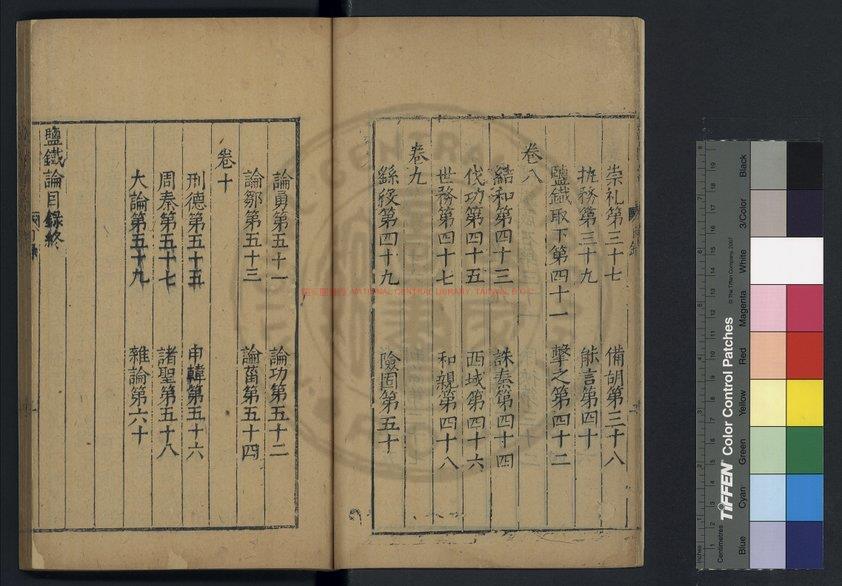 崇礼第三十七 備胡第三十八
执務第三十九 能言第四十
鹽鐵取下第四十一 擊之第四十二
卷八
結和第四十三 誅秦第四十四
伐功第四十五 西域第四十六
世務第四十七 和親第四十八
卷九
繇役第四十九 險固第五十
論勇第五十一 論功第五十二
論鄒第五十三 論菑第五十四
卷十
刑德第五十五 申韓第五十六
周秦第五十七 諸聖第五十八
大論第五十九 雜論第六十
鹽鐵論目録終
NATIONAL CENTRAL LIBRARY, TAIWAN, R.O.C.
TIFFEN Color Control Patches
© The Tiffen Company, 2007
Centimetres
Inches
Blue
Cyan
Green
Yellow
Red
Magenta
White
3/Color
Black